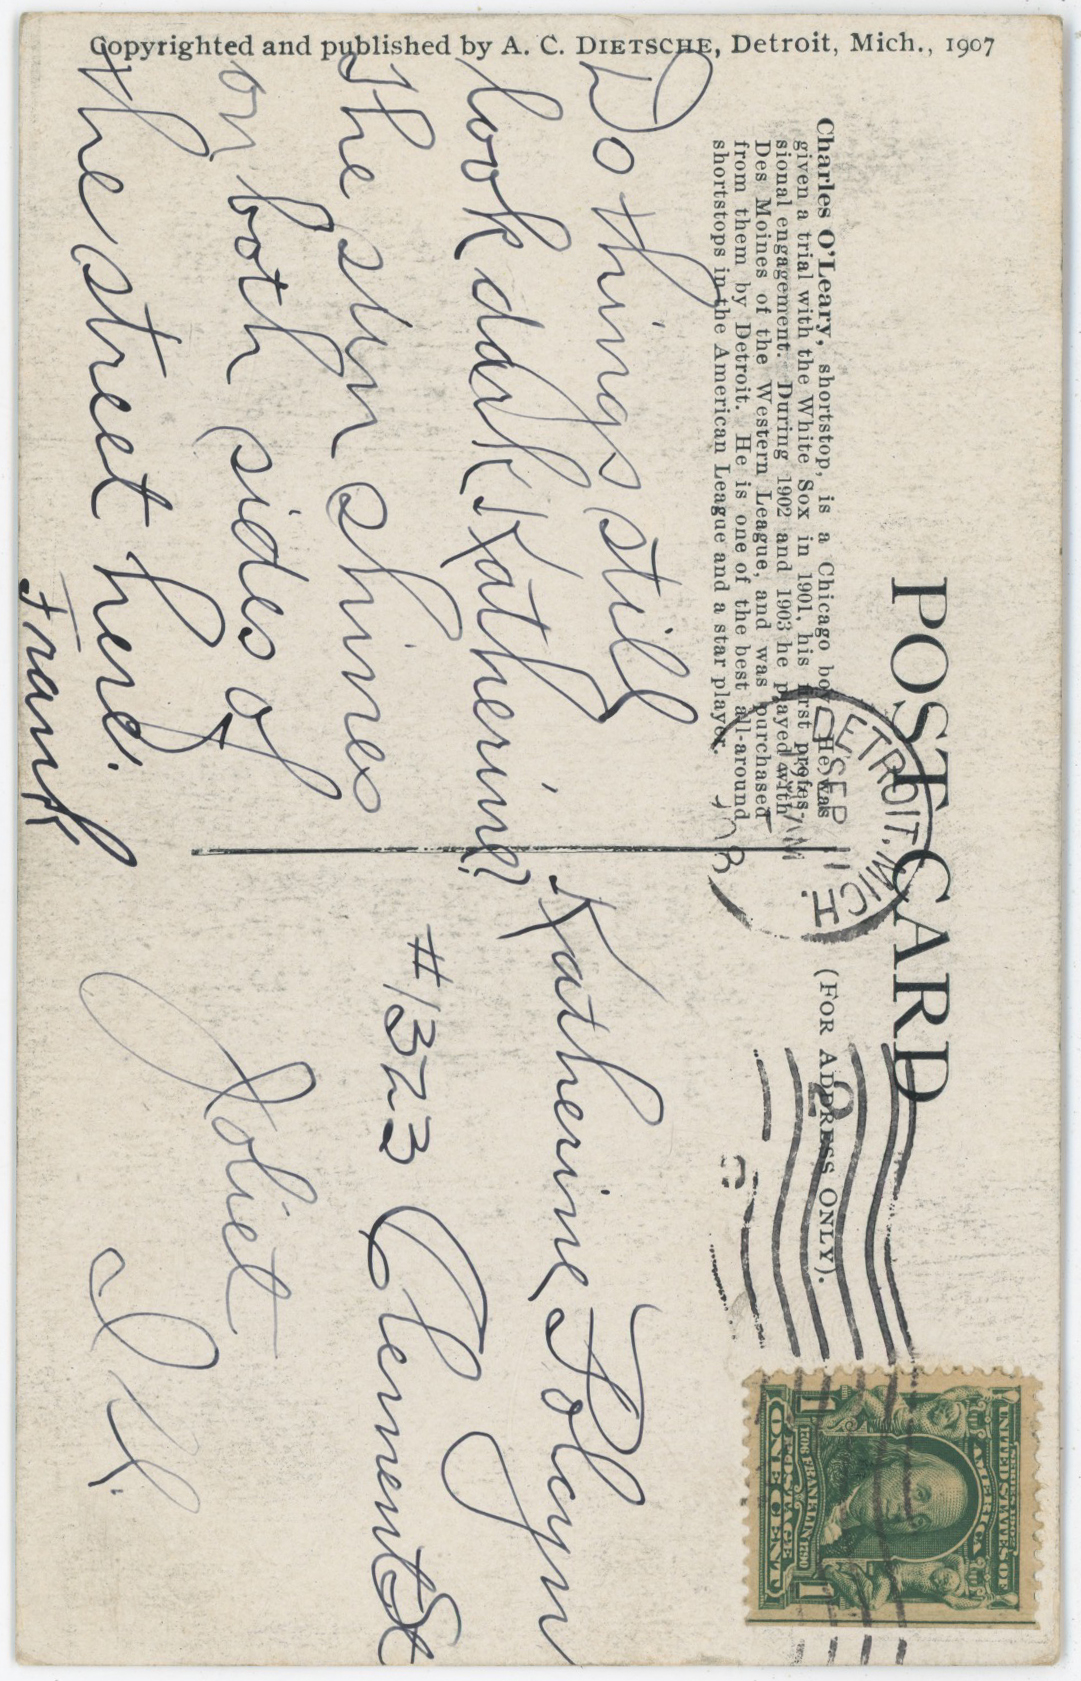 Copyrighted and published by A. C. DIETSCHE, Detroit, Mich., 1907
POST CARD
(FOR ADDRESS ONLY).
Charles O'Leary, shortstop, is a Chicago boy. He was
given a trial with the White Sox in 1901, his first profes-
sional engagement. During 1902 and 1903 he played with
Des Moines of the Western League, and was purchased
from them by Detroit. He is one of the best all-around
shortstops in the American League and a star player.
DETROIT, MICH.
SEP 11
AM
2
UNITED STATES OF
AMERICA
1706 FRANKLIN 1790
POSTAGE
1 ONE CENT 1
Do things still
look dark Katherine?
The sun shines
on both sides of
the street here.
Frank
Katherine
#1323 Clement St
Joliet
Ill.